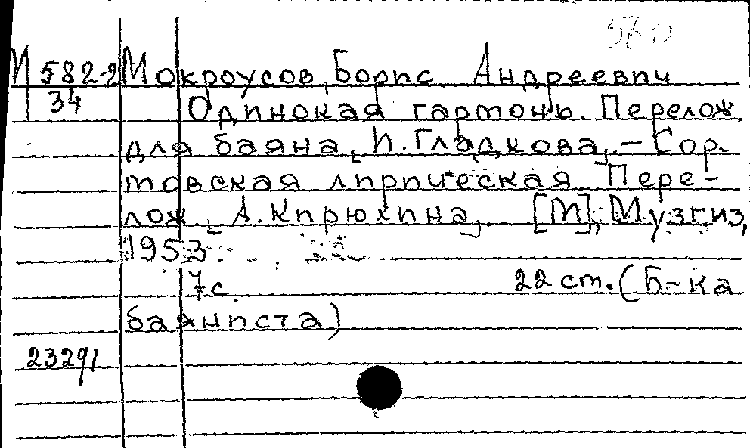 М 582-2 Мокроусов, Борис Андреевич
34 Одинокая гармонь. Перелож.
для баяна, П. Гладкова, – Сор-
мовская лирическая. Пере-
лож. А. Кирюхина, [М], Музгиз,
1953.
7 с 22 ст. (Б-ка
баяниста)
23291